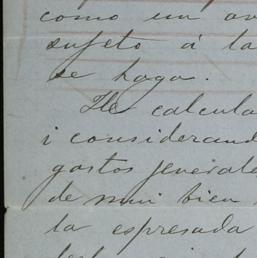 como un av
sujeto á la
se haga.
He calcula
i considerand
gastos jenerale
de mui bien
la espresada